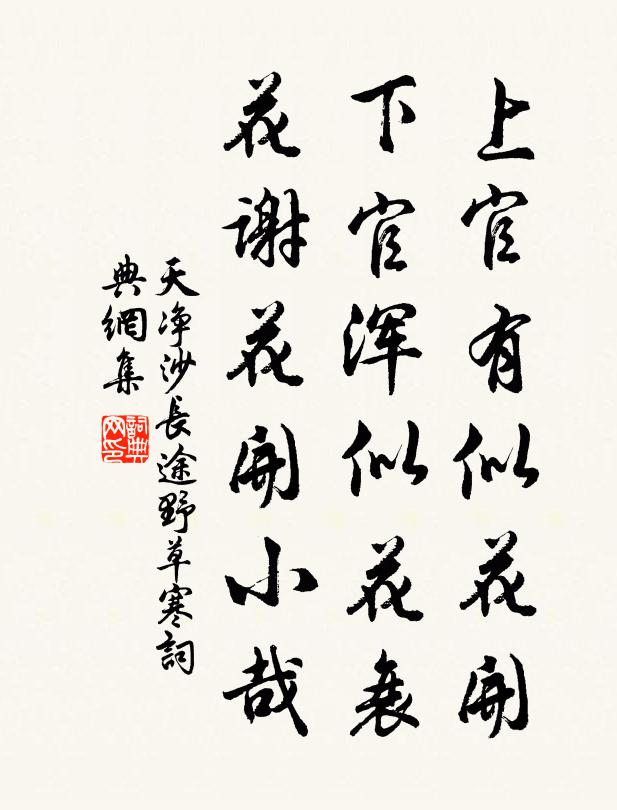 上官有似花開
下官浑似花衰
花谢花開小哉
天净沙長途野草寒詞
典網集
詞典網印